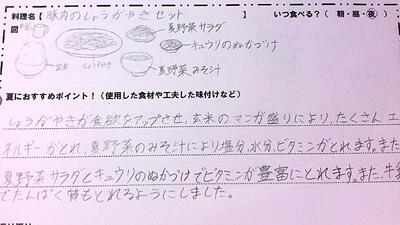 料理名【 豚肉のしょうがやきセット 】 いつ食べる？（ 朝・昼・夜 ）
図
夏野菜サラダ
キュウリのぬかづけ
玄米 しょうがやき 夏野菜みそ汁
夏におすすめポイント！（使用した食材や工夫した味付けなど）
しょうがやきが食欲をアップさせ、玄米のマンガ盛りにより、たくさん エ
ネルギーがとれ、夏野菜のみそ汁により塩分、水分、ビタミンがとれます。また
夏野菜サラダとキュウリのぬかづけでビタミンが豊富にとれます。また、牛乳
でたんぱく質もとれるようにしました。